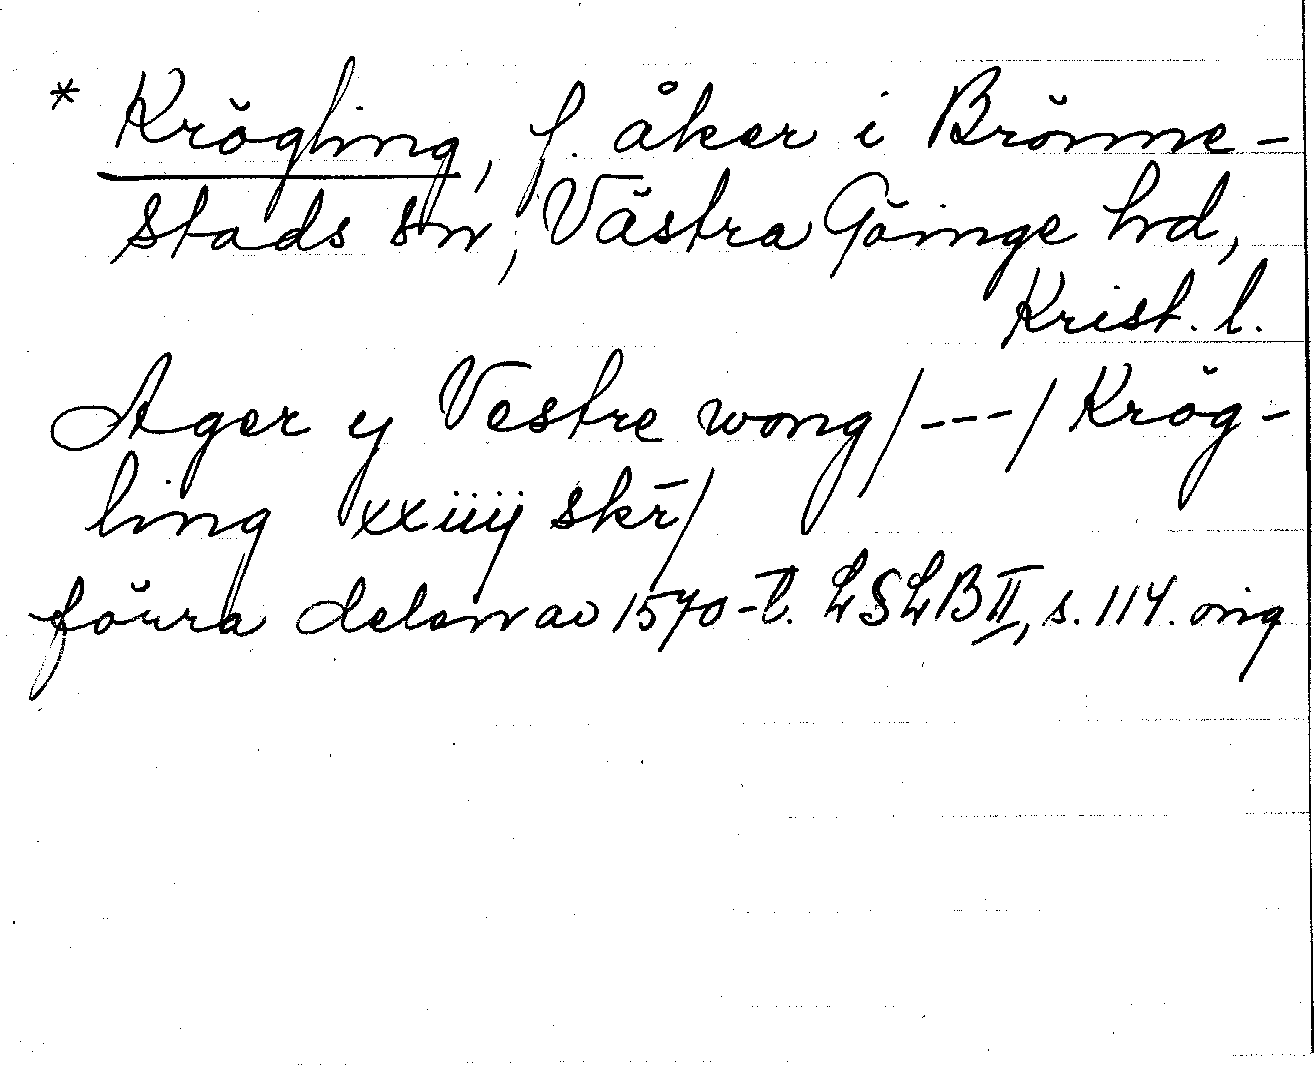 * Krögling, f. åker i Brönne-
stads sn, Västra Göinge hd,
Krist. l.
Ager y Vestre wong/---/Krög-
ling xxiiij skr̄/
förra delen av 1570-t. LSLB II, s. 114. orig